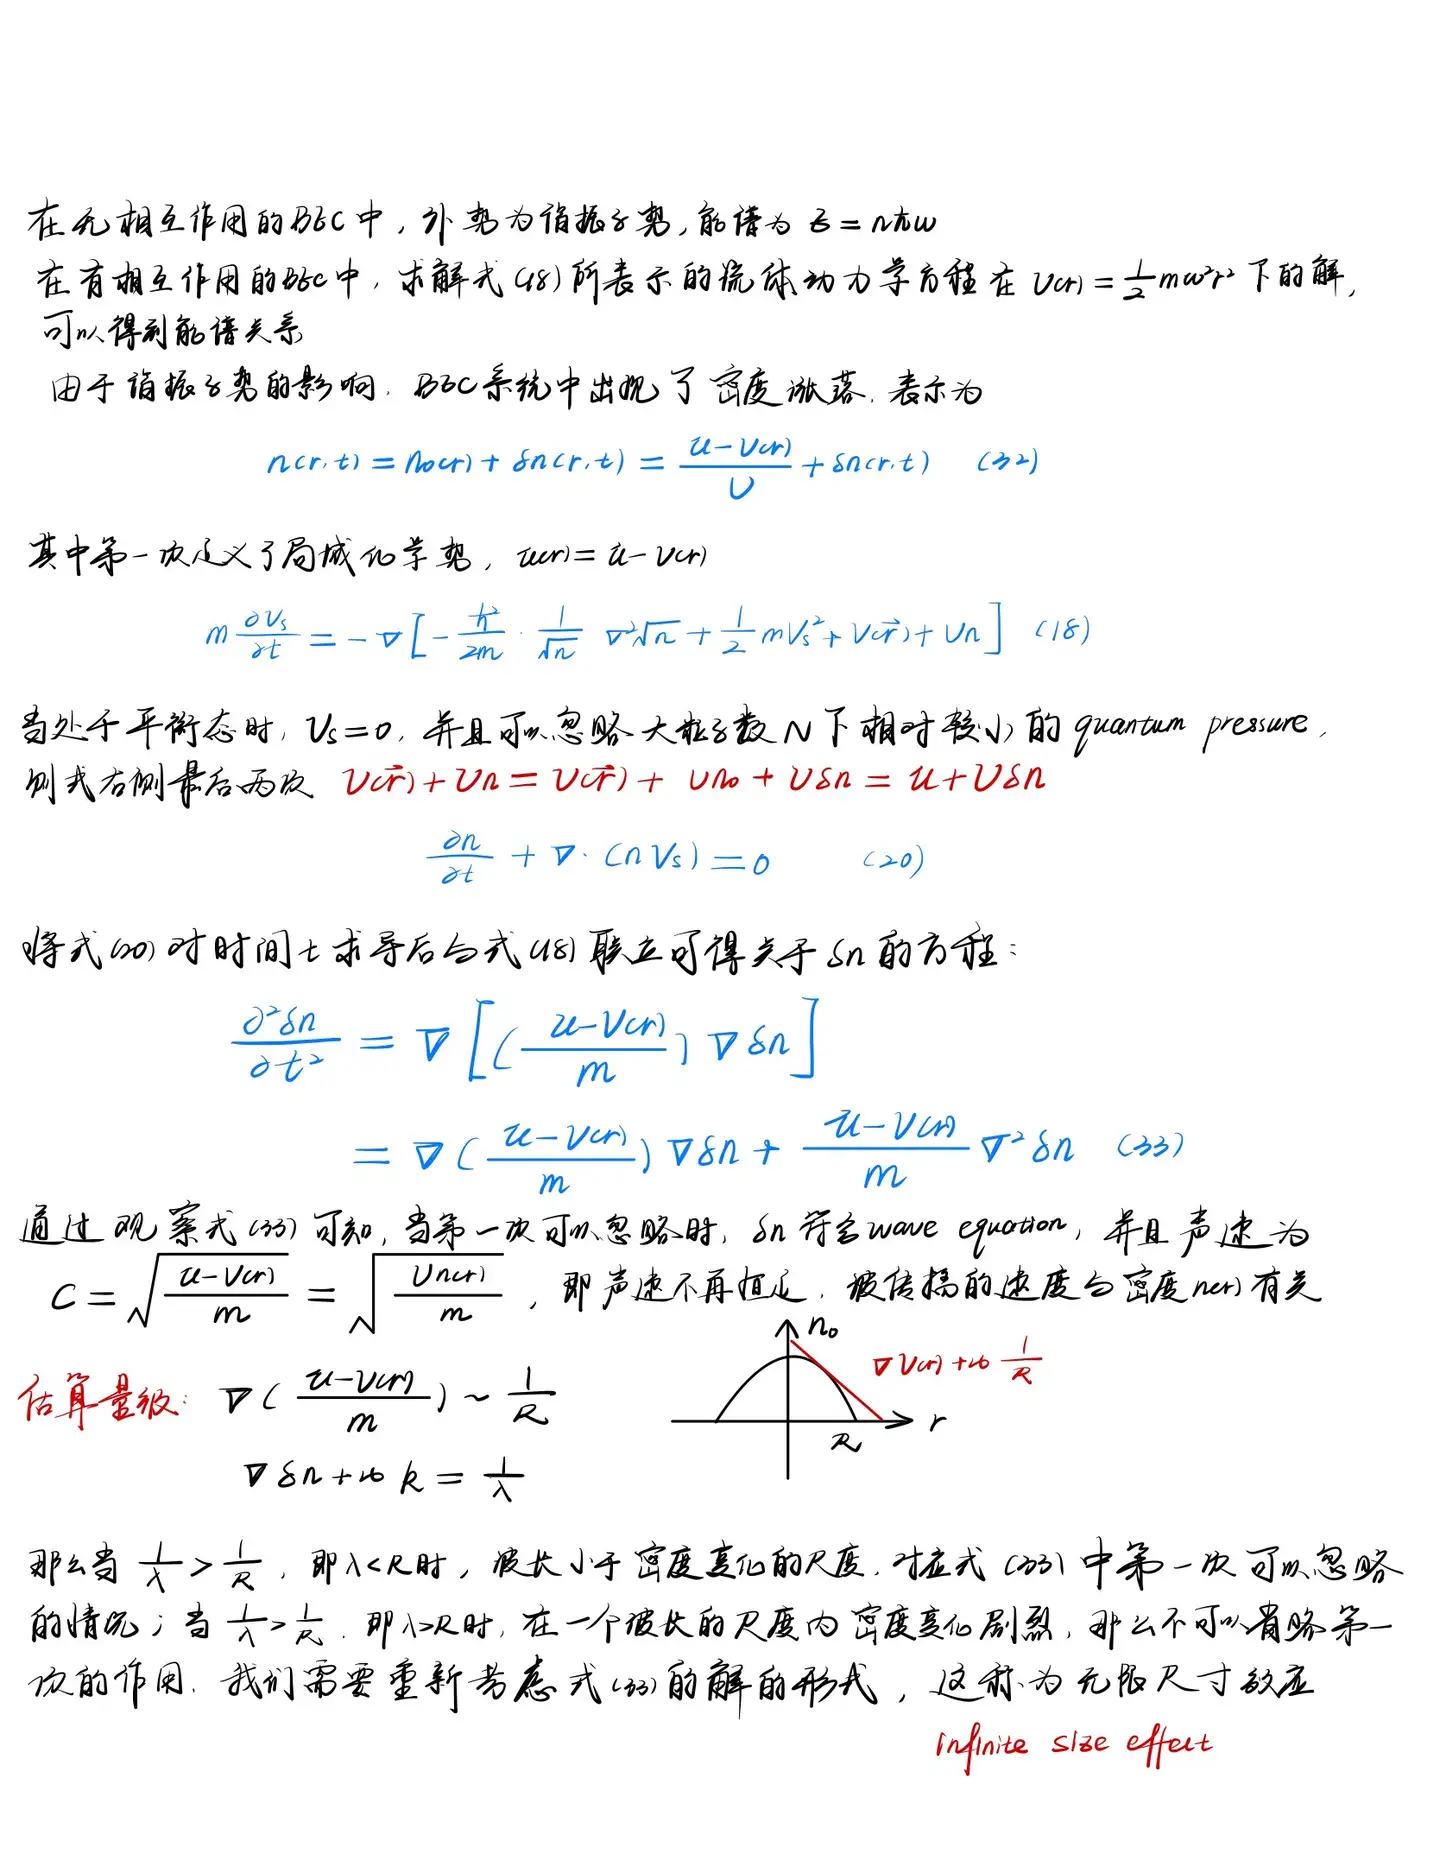 在无相互作用的BEC中，外势为谐振子势，能谱为 E = nħω
在有相互作用的BEC中，求解式(18)所表示的流体动力学方程在 V(r) = 1/2 mω²r² 下的解，
可以得到能谱关系
由于谐振子势的影响，BEC系统中出现了密度涨落，表示为
n(r,t) = n₀(r) + δn(r,t) = (μ-V(r))/U + δn(r,t) (32)
其中第一次定义了局域化学势，μ(r) = μ - V(r)
m ∂Vs/∂t = -∇[-ħ²/2m · 1/√n ∇²√n + 1/2 mVs² + V(r⃗) + Un] (18)
当处于平衡态时，Vs=0，并且可以忽略大粒子数N下相对较小的 quantum pressure，
则式右侧最后两次 V(r⃗) + Un = V(r⃗) + Un₀ + Uδn = μ + Uδn
∂n/∂t + ∇·(nVs) = 0 (20)
将式(20)对时间t求导后与式(18)联立可得关于δn的方程：
∂²δn/∂t² = ∇[((μ-V(r))/m) ∇δn]
= ∇((μ-V(r))/m) ∇δn + (μ-V(r))/m ∇²δn (33)
通过观察式(33)可知，当第一次可以忽略时，δn符合wave equation，并且声速为
C = √((μ-V(r))/m) = √(Un(r)/m)，即声速不再恒定，波传播的速度与密度n(r)有关
n₀
∇V(r) ~ 1/R
估算量级： ∇((μ-V(r))/m) ~ 1/R
R r
∇δn ~ k = 1/λ
那么当 1/λ > 1/R，即λ<R时，波长小于密度变化的尺度，对应式(33)中第一次可以忽略
的情况；当 1/λ > 1/R，即λ>R时，在一个波长的尺度内密度变化剧烈，那么不可以省略第一
次的作用，我们需要重新考虑式(33)的解的形式，这称为无限尺寸效应
infinite size effect